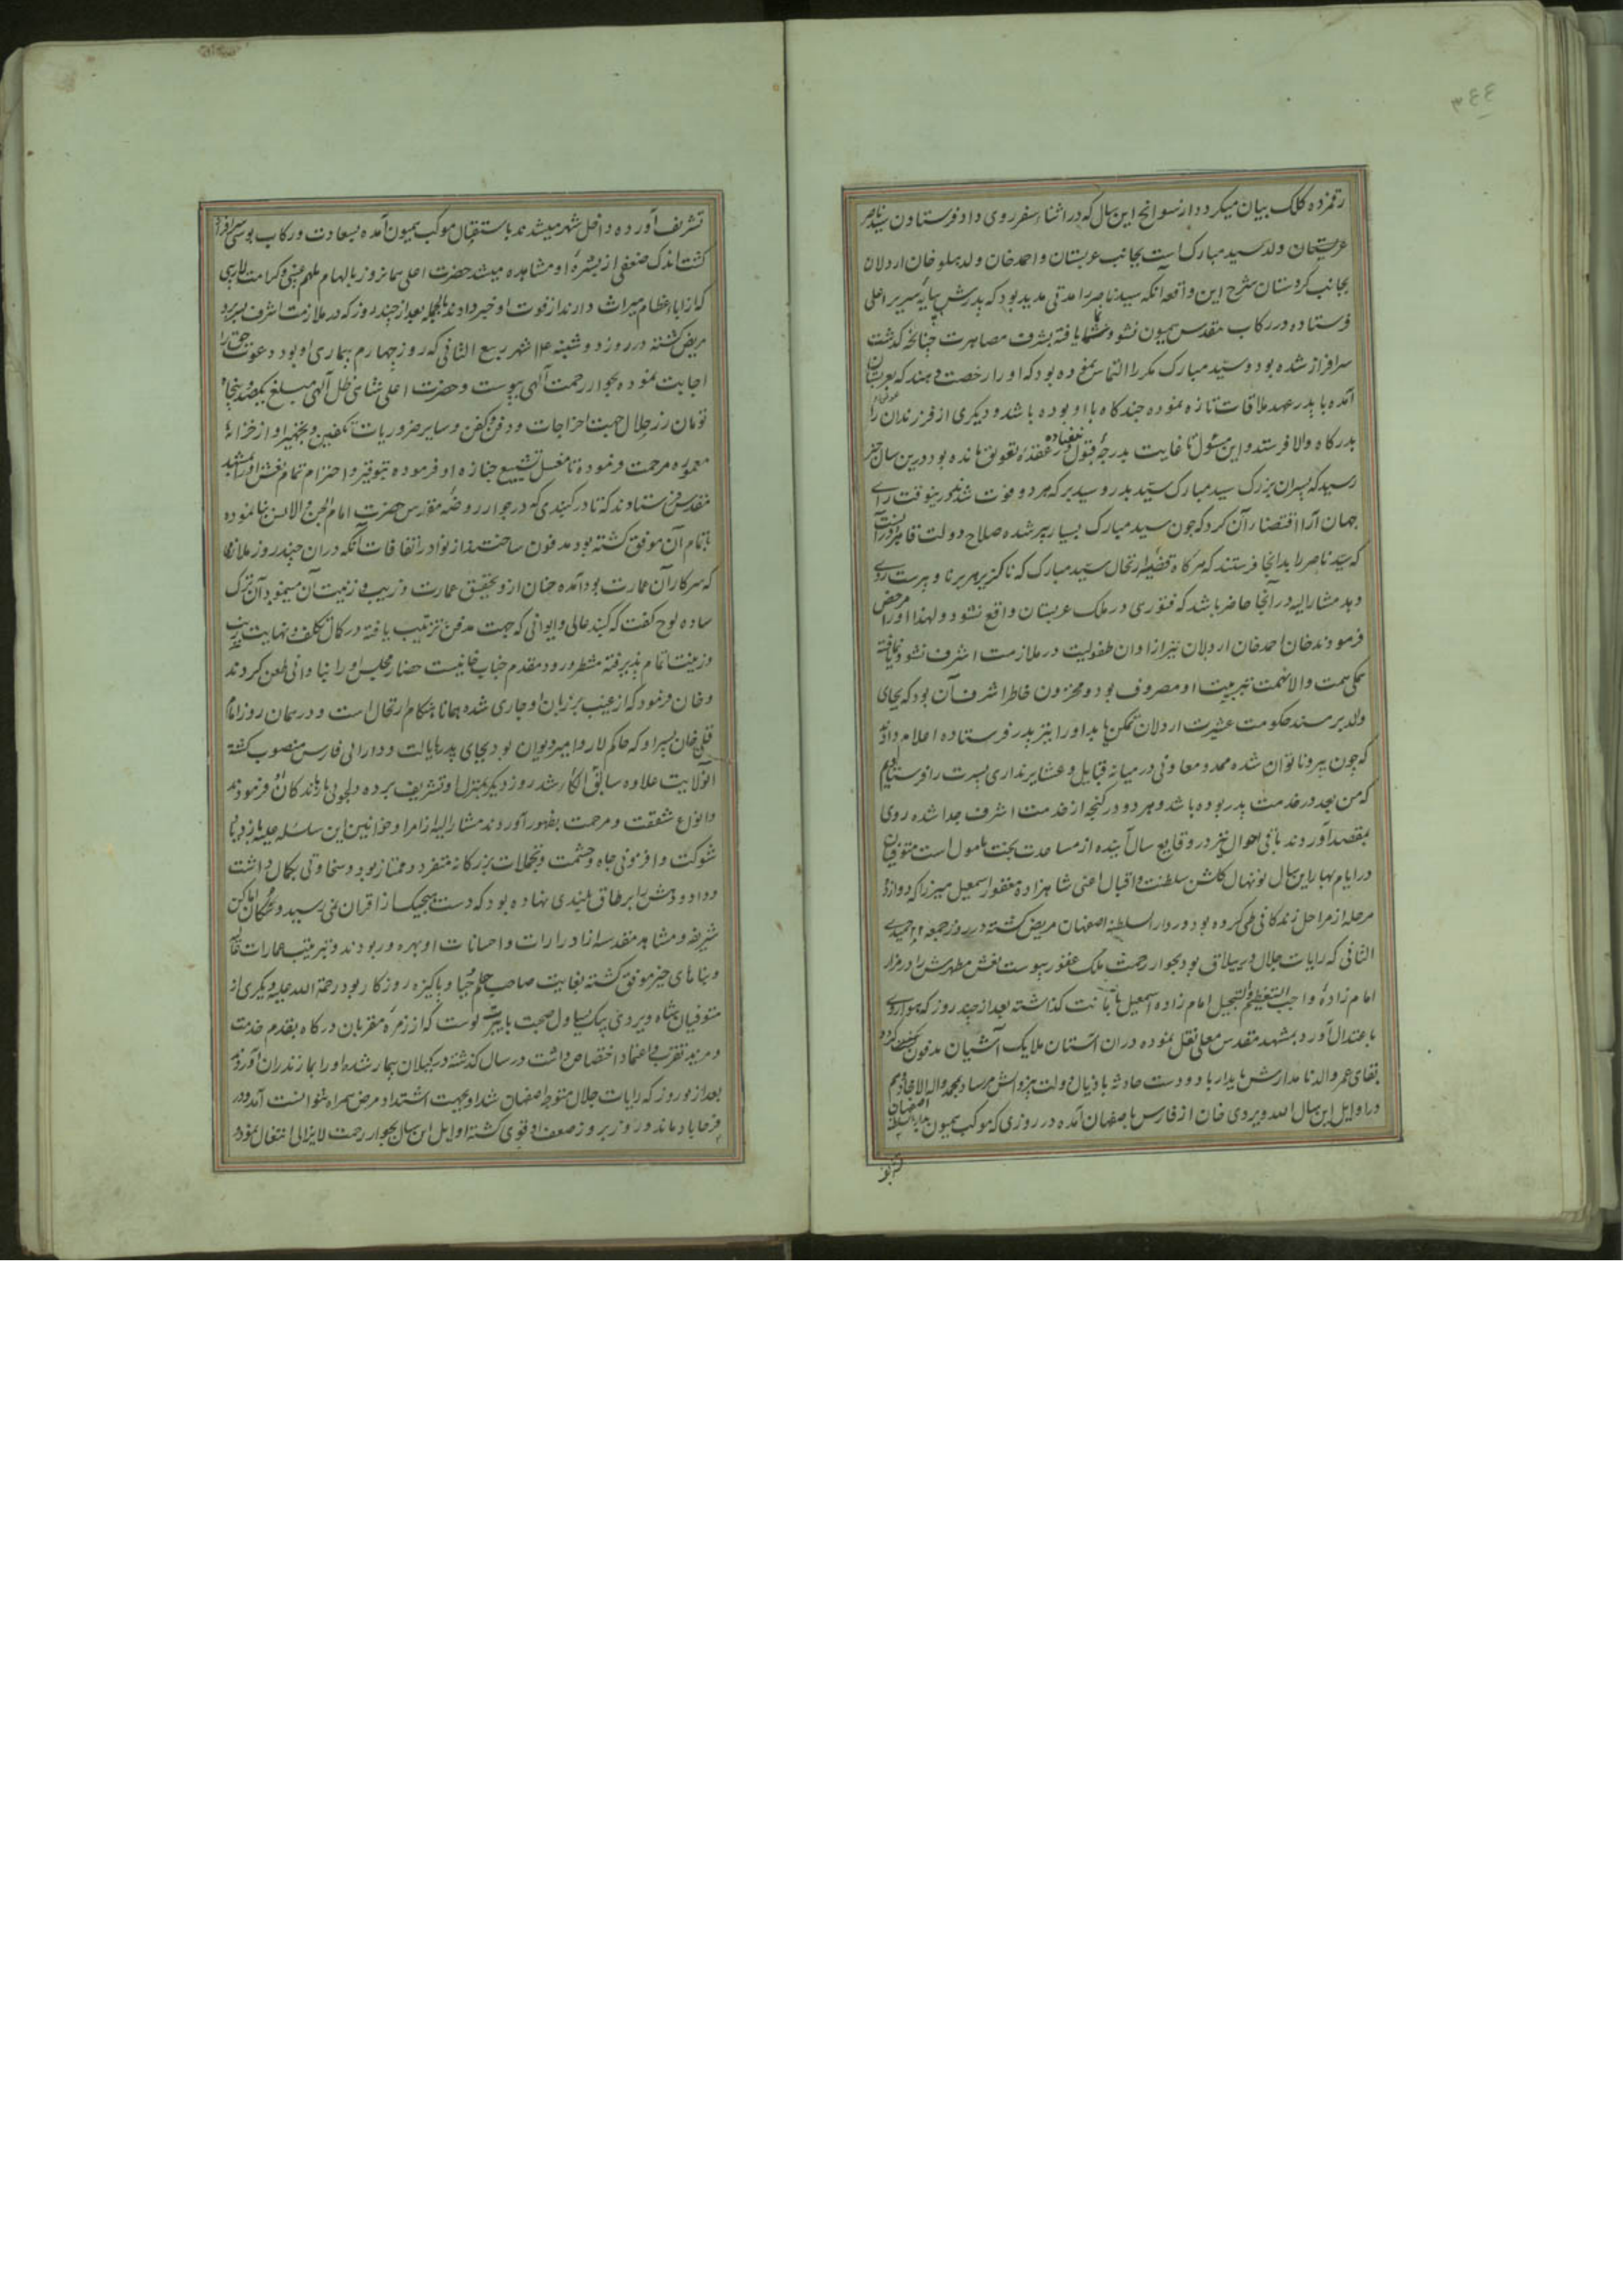 ۳۴۴
رقمزده کلک بیان میکردد از سوانح این سال که در اثناء سفر روی داد فرستادن سید ناصر
ولد سید مبارک است بجانب عربستان و احمد خان ولد هلو خان اردلان
بجانب کردستان شرح این واقعه آنکه سید ناصر را مدتی مدید بود که پدرش بپایه سریر اعلی
فرستاده در رکاب مقدس همیون نشو و نما یافته بشرف مصاهرت چنانچه کذشت
سرافراز شده بود و سید مبارک مکررا التماس نموده بود که او را رخصت دهند که بعربستان
آمده با پدر عهد ملاقات تازه نموده چند کاه با او بوده باشد و دیکری از فرزندان را
بدرکاه والا فرستد و این مسئول تا غایت بدرجه قبول در عقده تعویق مانده بود درین سال خبر
رسید که پسران بزرک سید مبارک سید بدر و سید برکه هر دو فوت شدند درینوقت رای
جهان آرا اقتضاء آن کرد که چون سید مبارک بسیار پیر شده صلاح دولت قاهره در آنست
که سید ناصر را بدانجا فرستند که هرکاه قضیه ارتحال سید مبارک که ناکزیر هر برنا و پیرست روی
دهد مشارالیه در آنجا حاضر باشد که فتوری در ملک عربستان واقع نشود و لهذا او را مرخص
فرمودند خان احمد خان اردلان نیز از اوان طفولیت در ملازمت اشرف نشو و نما یافته
همکی همت والا نهمت بتربیت او مصروف بود و مخزون خاطر اشرف آن بود که بجای
والد بر مسند حکومت عشیرت اردلان تمکن یابد او را نیز بپدر فرستاده اعلام دادند
که چون پیر و ناتوان شده ممد و معاونی در میانه قبایل و عشایر نداری پسرت را فرستادیم
که من بعد در خدمت پدر بوده باشد و هر دو در کنجه از خدمت اشرف جدا شده روی
بمقصد آوردند باقی احوال نیز در وقایع سال آینده از مساعدت بخت مامول است متوفیان
در ایام بهار این سال نونهال کلشن سلطنت و اقبال اعنی شاهزاده مغفور اسمعیل میرزا که دوازده
مرحله از مراحل زندکانی طی کرده بود در دارالسلطنه اصفهان مریض کشته در روز جمعه ۲۲ جمیدی
الثانی که رایات جلال در ییلاق بود بجوار رحمت ملک غفور پیوست نعش مطهرش را در مزار
امام زاده واجب التعظیم والتبجیل امام زاده اسمعیل بامانت کذاشته بعد از چند روز که هوا روی
باعتدال آورد بمشهد مقدس معلی نقل نموده در آن آستان ملایک آشیان مدفون
بقای عمر والد نامدارش پایدار باد و دست حادثه باذیال دولت بیزوالش مرساد بمحمد واله الامجاد هم
در اوایل این سال الله ویردی خان از فارس باصفهان آمده در روزی که موکب همیون بدارالسلطنه اصفهان
تشریف
تشریف آورده داخل شهر میشدند باستقبال موکب همیون آمده بسعادت رکاب بوسی سرافراز
کشت اندک ضعفی از بشره او مشاهده میشد حضرت اعلی همانروز بالهام ملهم غیبی و کرامت لاریبی
که از اباء عظام میراث دارند از فوت او خبر دادند بالجمله بعد از چند روز که در ملازمت اشرف بسر برد
مریض کشته در روز دوشنبه ۱۴ شهر ربیع الثانی که روز چهارم بیماری او بود دعوت حق را
اجابت نموده بجوار رحمت آلهی پیوست و حضرت اعلی شاهی ظل آلهی مبلغ یکصد و پنجاه
تومان زر حلال جهت اخراجات و دفن و کفن و سایر ضروریات تکفین و تجهیز او از خزانه
معموره مرحمت فرموده تا مغسل تشییع جنازه او فرموده بتوقیر و احترام تمام نعش او را بمشهد
مقدس فرستادند که تا در کنبدی که در جوار روضه مقدس حضرت امام الجن والانس بنا نموده
باتمام آن موفق کشته بود مدفون ساختند از نوادر اتفاقات آنکه در آن چند روز ملازمی
که سرکار آن عمارت بود آمده خان ازو تحقیق عمارت و زیب و زینت آن مینمود آن ترک
ساده لوح کفت که کنبد عالی و ایوانی که جهت مدفن ترتیب یافته در کمال تکلف و نهایت زیب
و زینت اتمام پذیرفته منتظر ورود مقدم جناب خانیست حضار مجلس او را بنادانی طعن کردند
و خان فرمود که از غیب بر زبان او جاری شده همانا هنکام ارتحال است و در همان روز امام
قلی خان پسر او که حاکم لار و امیر دیوان بود بجای پدر بایالت و دارائی فارس منصوب کشته
آنولایت علاوه سابق الکاء شد روز دیکر بمنزل او تشریف برده دلجوئی بازماندکان او فرمودند
و انواع شفقت و مرحمت بظهور آوردند مشارالیه از امرا و خوانین این سلسله علیه بزیادتی
شوکت و افزونی جاه و حشمت و تجملات بزرکانه متفرد و ممتاز بود و سخاوتی بکمال داشت
و داد و دهش را بر طاق بلندی نهاده بود که دست هیچیک از اقران نمی رسید و سکان اماکن
شریفه و مشاهد مقدسه از ادرارات و احسانات او بهره ور بودند و بترتیب عمارات عالیه
و بناهای خیر موفق کشته بغایت صاحب حلم و حیا و پاکیزه روزکار بود رحمة الله علیه دیکری از
متوفیان شاه ویردی بیک یساول صحبت بایبرتلوست که از زمره مقربان درکاه بقدم خدمت
و مزید تقرب و اعتماد اختصاص داشت در سال کذشته در کیلان بیمار شده او را بمازندران آوردند
بعد از نوروز که رایات جلال متوجه اصفهان شد او بجهت اشتداد مرض همراه نتوانست آمد و در
فرحاباد ماند و روز بروز ضعف او قوی کشته اوایل این سال بجوار رحمت لایزالی انتقال نمود